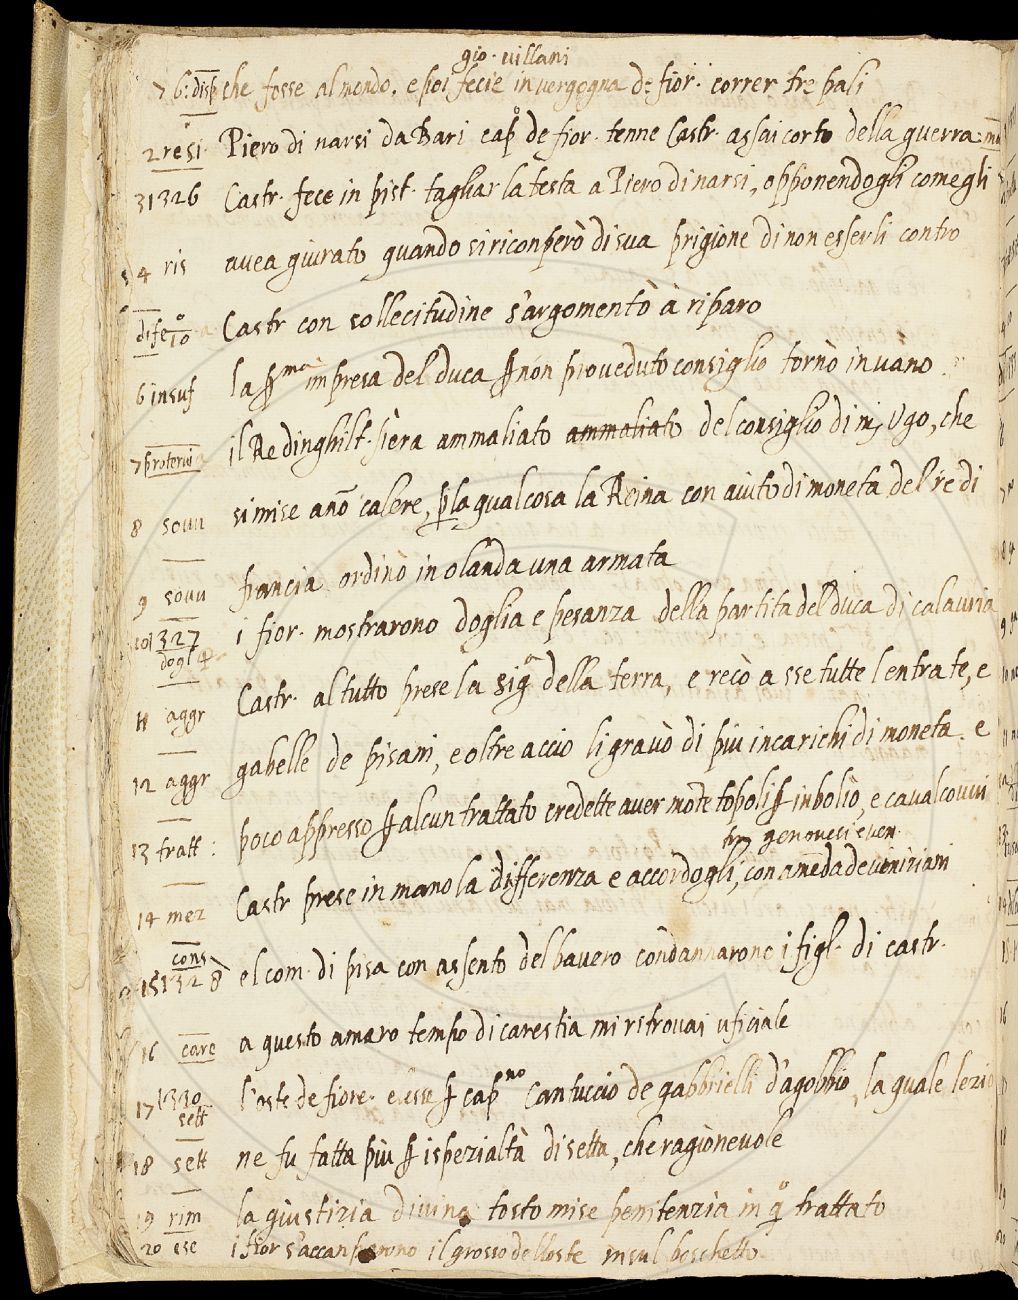 gio. villani
7 6: disp che fosse al mondo. e poi fecie in vergogna de fior. correr tre pali
2 resi. Piero di narsi da Bari capo de fior. tenne Castr. assai corto della guerra
3 1326 Castr. fece in pist. tagliar la testa a Piero di narsi, opponendogli comegli
4 ris avea giurato quando si riconperò di sua prigione di non esserli contro
dife Castr con sollecitudine s'argomentò à riparo
6 insuf la pma impresa del duca p non proveduto consiglio tornò in vano
7 il Re dinghilt. s'era ammaliato ammaliato del consiglio di mj Ugo, che
8 sovu si mise a nō calere, p la qual cosa la Reina con aiuto di moneta del re di
9 sovu francia ordinò in olāda una armata
10 1327 i fior. mostrarono doglia e pesanza della partita del duca di calauria
dogl
11 aggr Castr. al tutto prese la siga della terra, e recò a sse tutte lentrate, e
12 aggr gabelle de pisani, e oltre accio li gravò di più incarichi di moneta. e
13 tratt: poco appresso p alcun trattato credette aver mōte topoli p inbolio, e cavalcovvi
genovesi e ven.
14 mez Castr prese in mano la differenza e accordogli, con amēda de viniziani
cons
15 1328 el com. di pisa con assento del bavero cōdannarono i figl. di castr.
16 care a questo amaro tempo di carestia mi ritrovai uficiale
17 1330 l'oste de fiore. elesse p capno Cantuccio de gabbrielli d'agobbio, la quale lezio
sett
18 sett ne fu fatta più p ispezialtà di setta, che ragionevole
19 rim la giustizia divina tosto mise penitenzia in qo trattato
20 ese i fior s'accanparono il grosso dell oste in sul boschetto